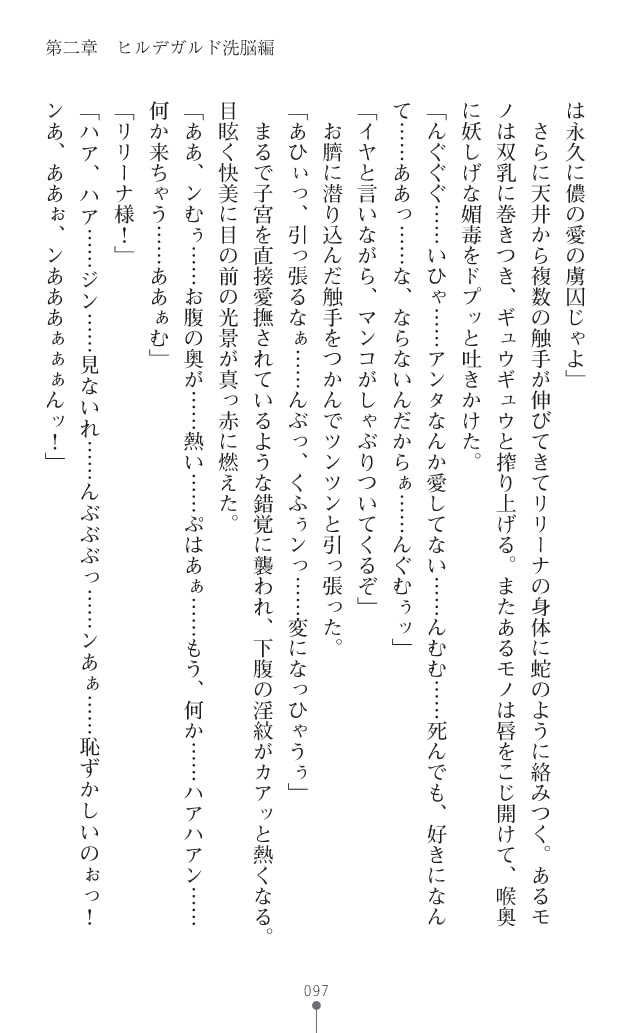 第二章　ヒルデガルド洗脳編
は永久に儂の愛の虜囚じゃよ」
　さらに天井から複数の触手が伸びてきてリリーナの身体に蛇のように絡みつく。あるモ
ノは双乳に巻きつき、ギュウギュウと搾り上げる。またあるモノは唇をこじ開けて、喉奥
に妖しげな媚毒をドプッと吐きかけた。
「んぐぐぐ……いひゃ……アンタなんか愛してない……んむむ……死んでも、好きになん
て……ああっ……な、ならないんだからぁ……んぐむぅッ」
「イヤと言いながら、マンコがしゃぶりついてくるぞ」
　お臍に潜り込んだ触手をつかんでツンツンと引っ張った。
「あひぃっ、引っ張るなぁ……んぶっ、くふぅンっ……変になっひゃうぅ」
　まるで子宮を直接愛撫されているような錯覚に襲われ、下腹の淫紋がカアッと熱くなる。
目眩く快美に目の前の光景が真っ赤に燃えた。
「ああ、ンむぅ……お腹の奥が……熱い……ぷはあぁ……もう、何か……ハアハアン……
何か来ちゃう……ああぁむ」
「リリーナ様！」
「ハア、ハア……ジン……見ないれ……んぶぶぶっ……ンあぁ……恥ずかしいのぉっ！
ンあ、ああぉ、ンあああぁぁぁんッ！」
097